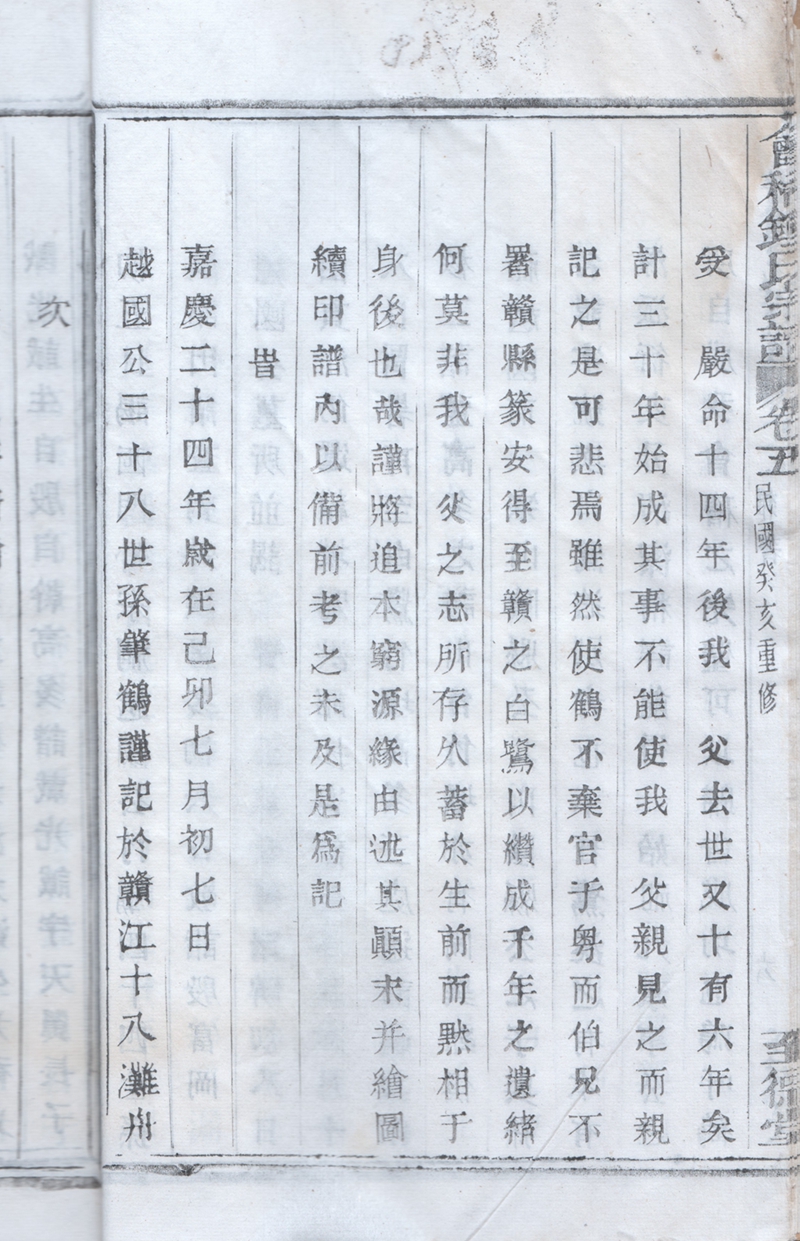 會稽鍾氏宗譜 卷五 民國癸亥重修
受 嚴命十四年後我 父去世又十有六年矣
計三十年始成其事不能使我 父親見之而親
記之是可悲焉雖然使鶴不棄官于粵而伯兄不
署贛縣篆安得至贛之白鷺以纘成千年之遺緒
何莫非我 父之志所存久蓄於生前而默相于
身後也哉謹將追本窮源緣由述其顚末并繪圖
續印譜內以備前考之未及是爲記
旹
嘉慶二十四年歲在己卯七月初七日
越國公三十八世孫肇鶴謹記於贛江十八灘舟
次